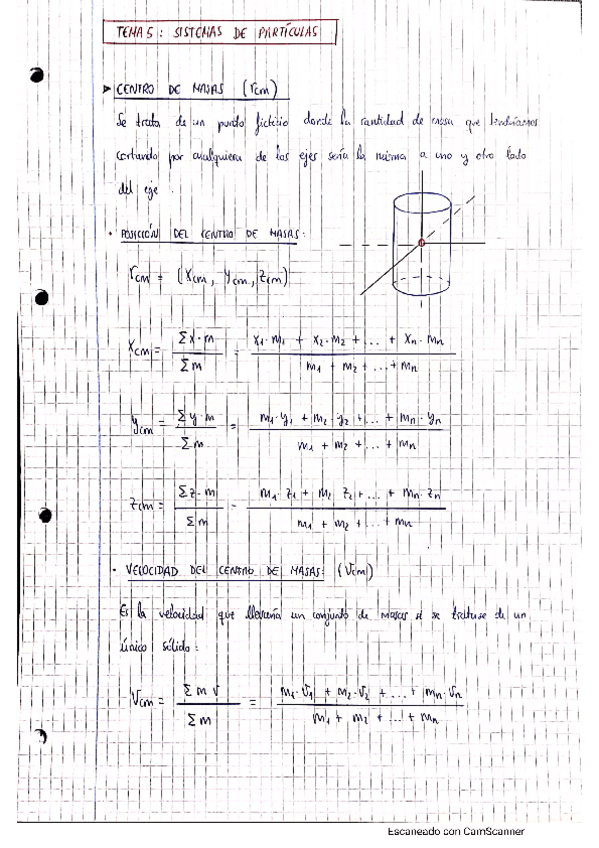 TEMA 5: SISTEMAS DE PARTÍCULAS
➤ CENTRO DE MASAS (rcm)
Se trata de un punto ficticio donde la cantidad de masa que tendríamos
cortando por cualquiera de los ejes sería la misma a uno y otro lado
del eje.
· POSICIÓN DEL CENTRO DE MASAS:
rcm = (Xcm, Ycm, Zcm)
Xcm = Σx·m / Σm = x1·m1 + x2·m2 + ... + xn·mn / m1 + m2 + ... + mn
ycm = Σy·m / Σm = m1·y1 + m2·y2 + ... + mn·yn / m1 + m2 + ... + mn
zcm = Σz·m / Σm = m1·z1 + m2 z2 + ... + mn·zn / m1 + m2 + ... + mn
· VELOCIDAD DEL CENTRO DE MASAS: (Vcm)
Es la velocidad que llevaría un conjunto de masas si se tratase de un
único sólido:
Vcm = Σ m v / Σm = m1·v1 + m2·v2 + ... + mn·vn / m1 + m2 + ... + mn
Escaneado con CamScanner